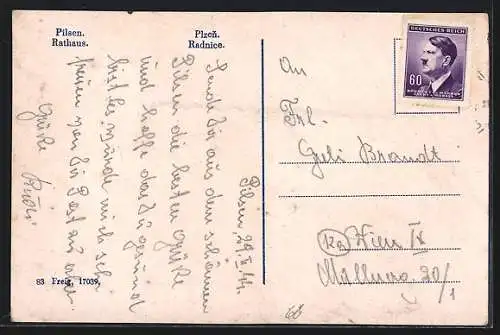 Pilsen.
Rathaus.
Plzeň.
Radnice.
Pilsen, 20. V. 44.
Sende Dir aus dem schönen
Pilsen die besten Grüße
und hoffe das Du gesund
bist es würde mich sehr
freuen von Dir Post zu
Grüße
Rudi
83 Freig. 17039.
DEUTSCHES REICH
60
An
Frl.
Geli Brandt
Wien IV
20/1